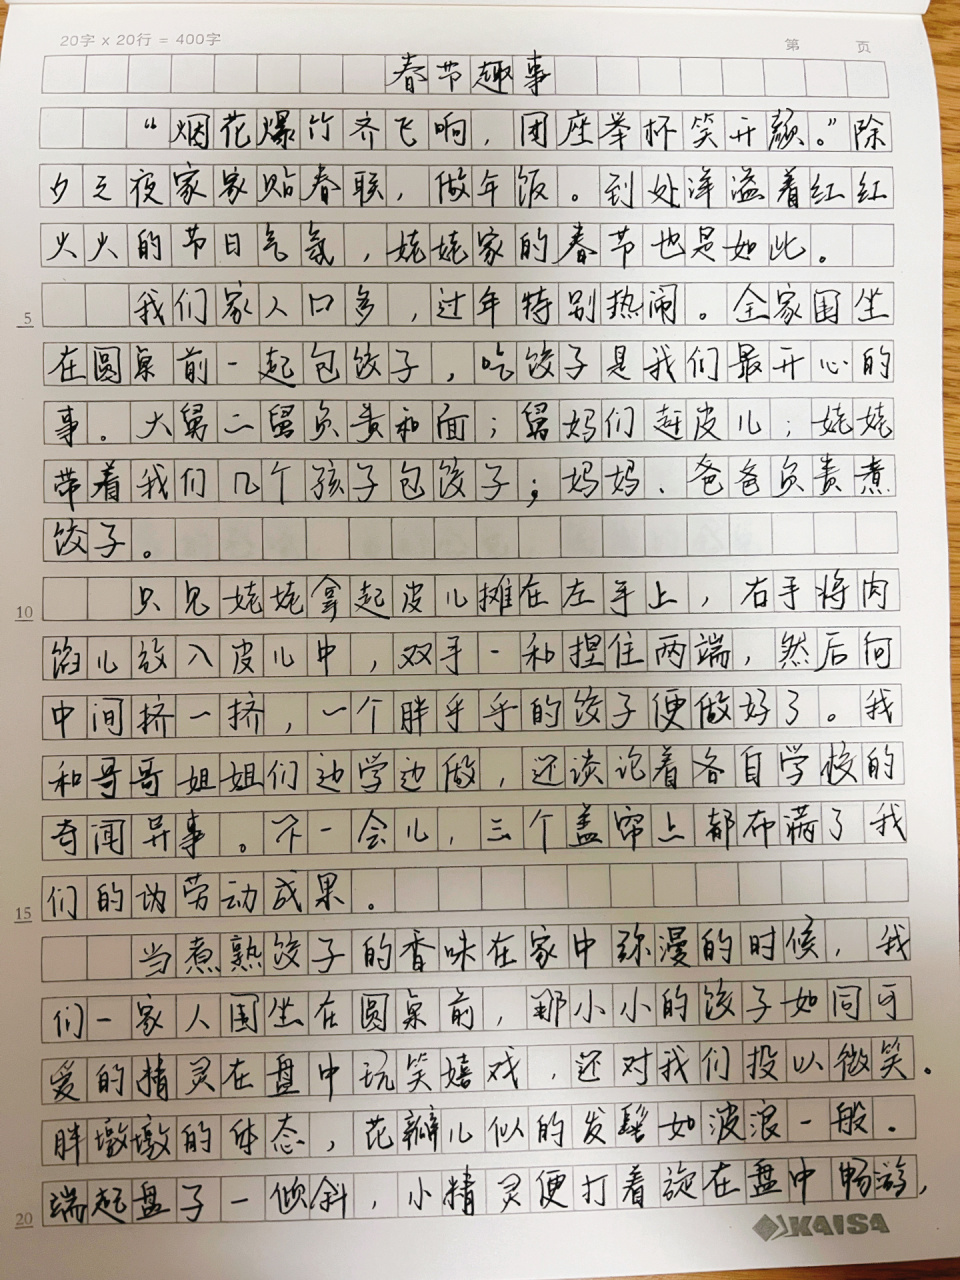 20字 x 20行 = 400字
第 页
春节趣事
“烟花爆竹齐飞响，团座举杯笑开颜。”除
夕之夜家家贴春联，做年饭。到处洋溢着红红
火火的节日气氛，姥姥家的春节也是如此。
我们家人口多，过年特别热闹。全家围坐
5
在圆桌前一起包饺子，吃饺子是我们最开心的
事。大舅二舅负责和面；舅妈们赶皮儿；姥姥
带着我们几个孩子包饺子；妈妈、爸爸负责煮
饺子。
只见姥姥拿起皮儿摊在左手上，右手将肉
10
馅儿放入皮儿中，双手一和捏住两端，然后向
中间挤一挤，一个胖乎乎的饺子便做好了。我
和哥哥姐姐们边学边做，还谈论着各自学校的
奇闻异事。不一会儿，三个盖帘上都布满了我
们的劳动成果。
15
当煮熟饺子的香味在家中弥漫的时候，我
们一家人围坐在圆桌前，那小小的饺子如同可
爱的精灵在盘中玩笑嬉戏，还对我们投以微笑。
胖墩墩的体态，花瓣儿似的发髦如波浪一般。
端起盘子一倾斜，小精灵便打着旋在盘中畅游，
20
KAISA